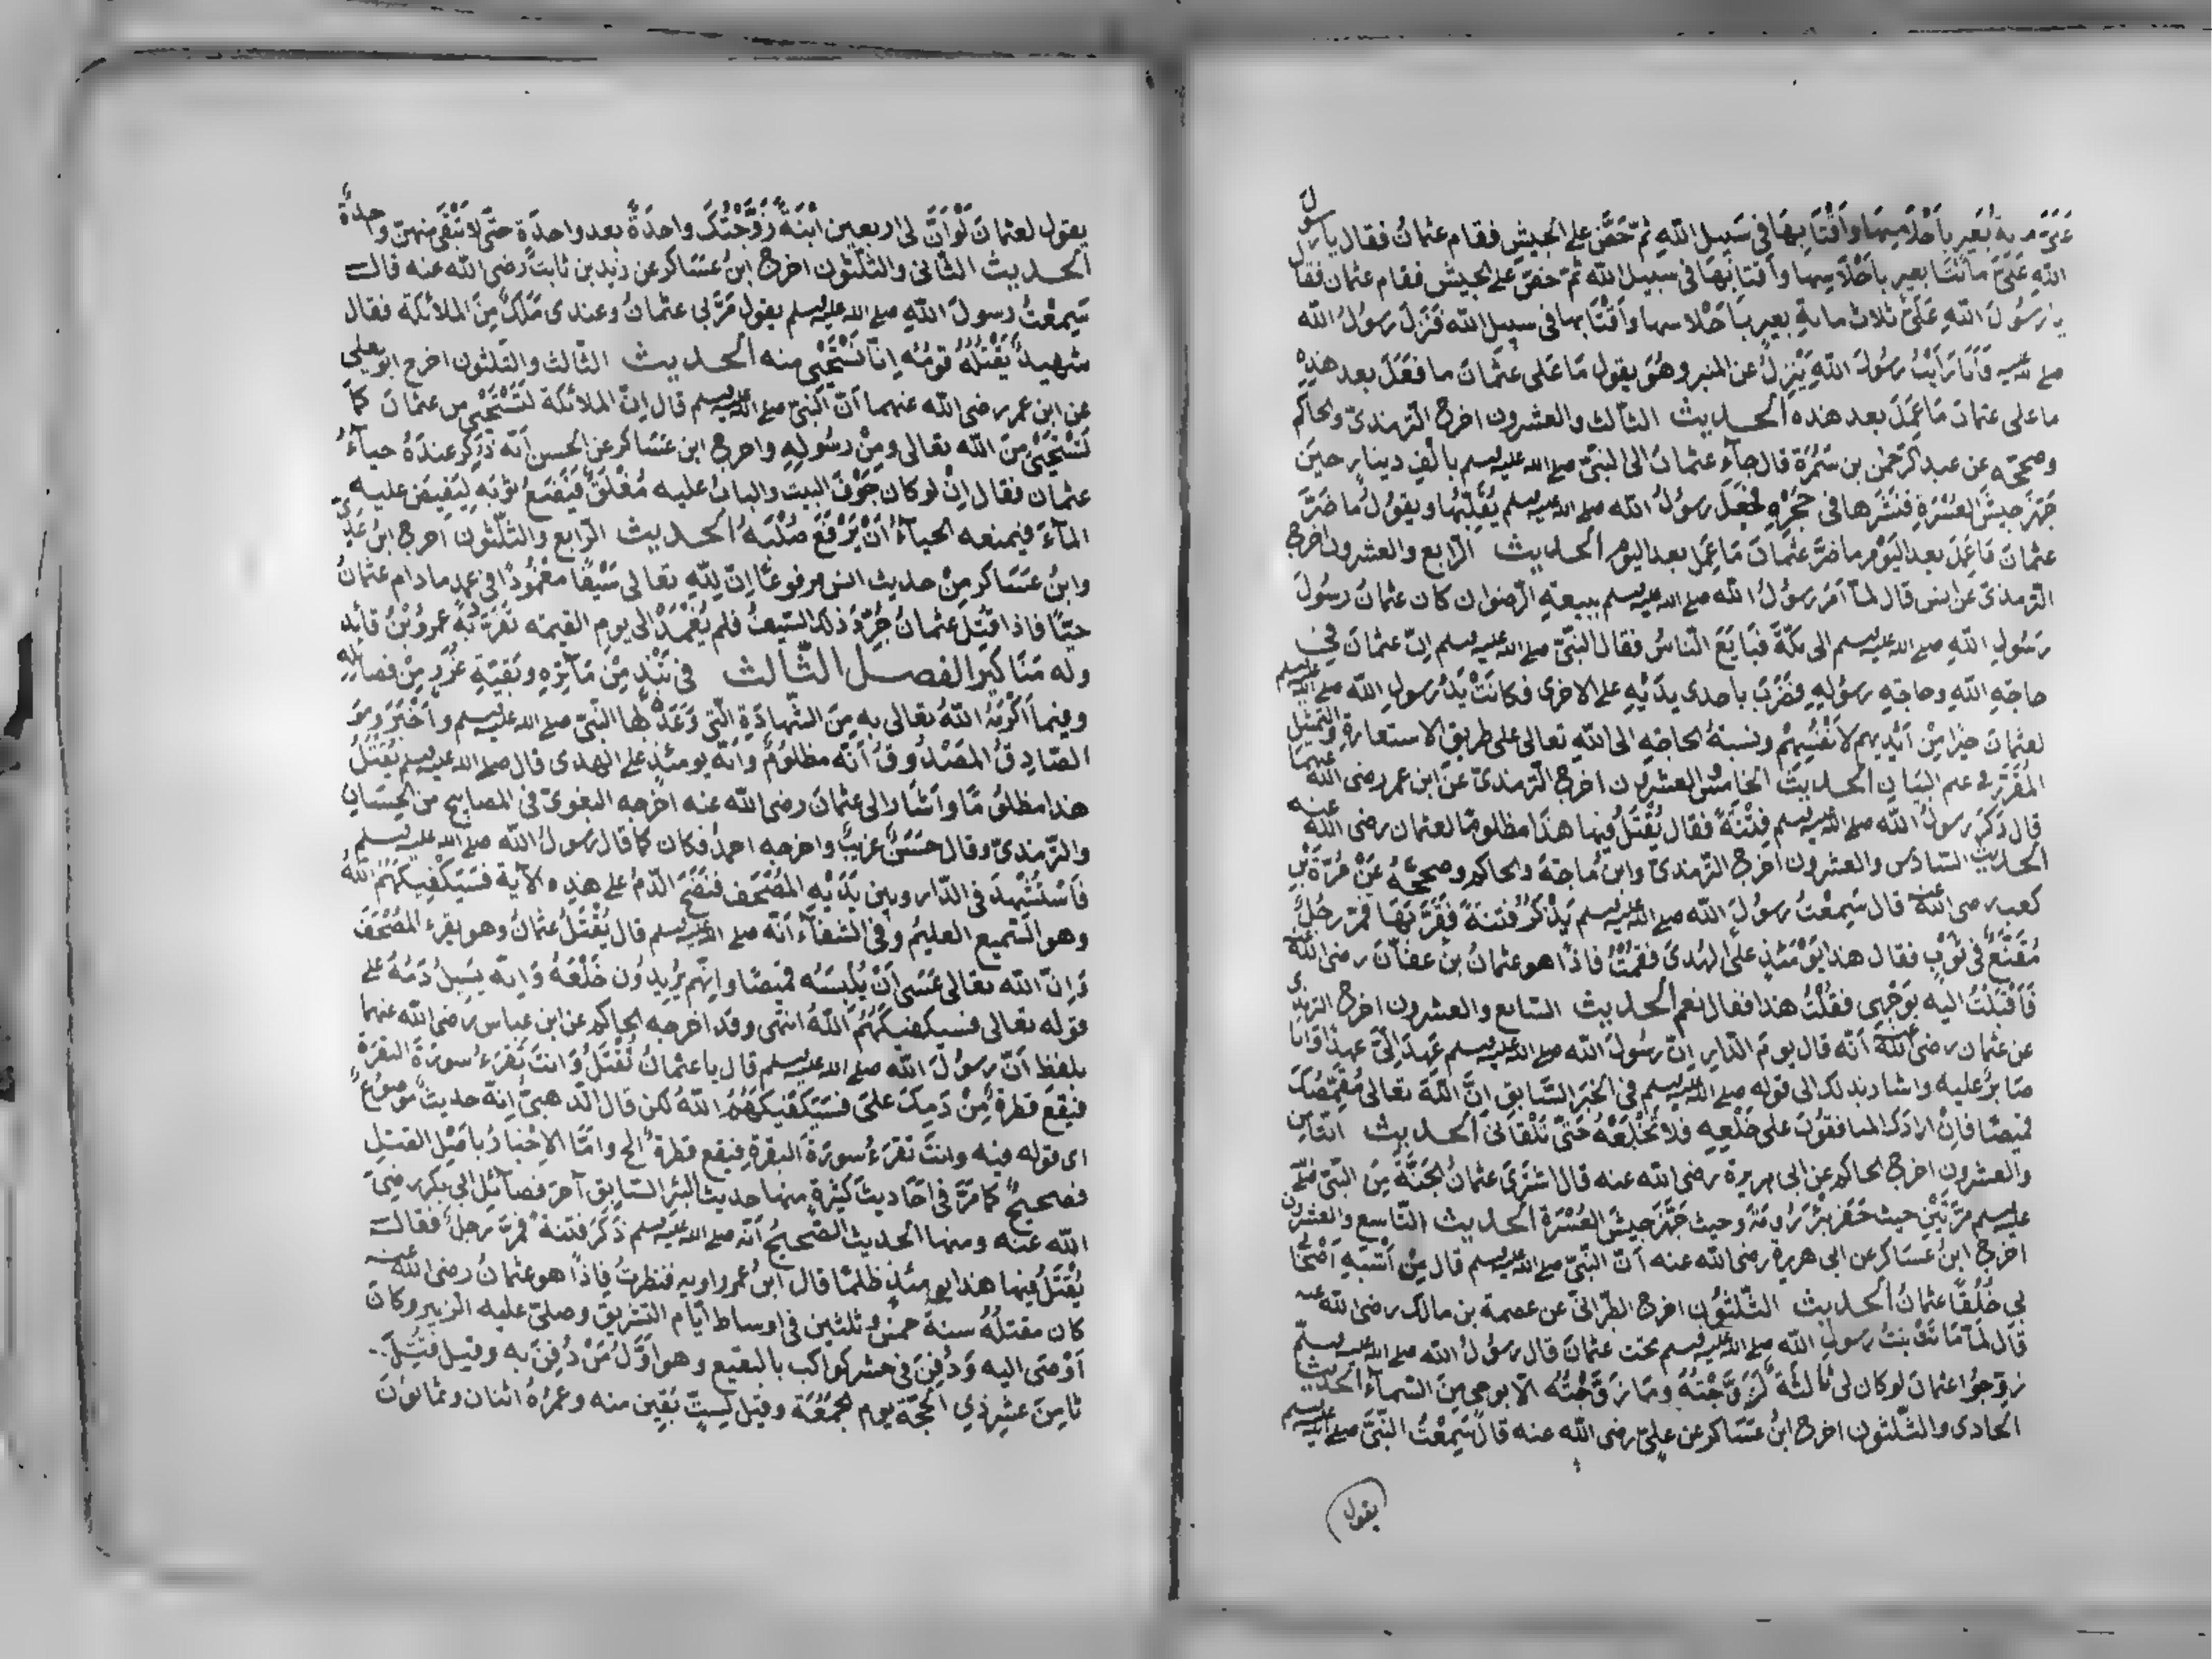 عَلَيَّ مِاية بَعير بِأَحْلاسِهَا وَأَقْتَابِهَا في سَبيل اللّه ثمّ حَضَّ على الجيش فقام عثمانُ فقال يا رسولَ
اللّه عَلَيَّ مائتا بعير باَحْلاسِها وأقتابِهَا في سبيل اللّه ثمّ حضّ على الجيش فقام عثمان فقال
يا رَسُولَ اللّه عَلَيَّ ثلاث ماية بعيرٍ بِاَحْلاسها وَاَقْتَابها في سبيل اللّه فنَزلَ رسُولُ اللّه
صلى الله عليه وَاَنَا رَاَيْتُ رَسُولَ اللّه يَنْزِلُ عن المنبر وهُوَ يقول مَا عَلى عثمانَ ما فَعَلَ بعد هذِهِ
ما على عثمانَ مَا عَمِلَ بعد هذه الحديث الثالث والعشرون اخرج الترمذيّ والحاكم
وصحّحه عن عبد الرّحمٰن بن سَمُرَة قال جآء عثمانُ الى النبيّ صلى الله عليه وسلم بالفِ دينارٍ حينَ
جَهّزَ جيشَ العُسْرَةِ فنَثَرَها في حَجْرِهِ فجَعَلَ رسُولُ اللّه صلى الله عليه وسلم يُقَلِّبُها ويقُولُ ما ضَرَّ
عثمانَ مَا عَمِلَ بعد اليَوْم ما ضَرَّ عثمانَ مَا عَمِلَ بعد اليوم الحديث الرّابع والعشرون اخرج
الترمذيّ عن انس قال لمّا اَمَرَ رسُولُ اللّه صلى الله عليه وسلم ببيعةِ الرّضوان كان عثمانُ رسُولَ
رسُولِ اللّه صلى الله عليه وسلم الى مكّةَ فبَايَعَ النّاسُ فقال النّبيّ صلى الله عليه وسلم اِنّ عثمانَ في
حاجَةِ اللّه وحاجةِ رسُولِهِ فضَرَبَ باحدى يدَيْهِ على الاخرى فكانَتْ يَدُ رسولِ اللّه صلى الله عليه وسلم
لعثمانَ خيْرًا مِنْ اَيْديهم لاَنْفُسِهِمْ ونسبةُ الحاجةِ الى اللّه تعالى على طريق الاستعارةِ والتّمثيل
المُقَرّر في علم البَيان الحديث الخامس والعشرون اخرج الترمذيّ عن ابن عمر رضى اللّه عنهما
قال ذَكَرَ رسولُ اللّه صلى الله عليه وسلم فِتْنَةً فقال يُقْتَلُ فيها هذا مظلومًا لعثمان رضى اللّه عنه
الحديث السّادس والعشرون اخرج الترمذيّ وابنُ ماجَة والحاكم وصحّحهُ عَنْ مُرّةَ بْنِ
كعب رضى اللّه عنه قال سَمِعْتُ رسُولَ اللّه صلى الله عليه وسلم يَذْكُرُ فتنَةً فَقَرَّبَهَا فمرّ رجُلٌ
مُقَنَّعٌ في ثَوْبٍ فقال هذا يَوْمَئذٍ علَى الهُدَى فقُمْتُ فاذا هو عثمانُ بن عفّانَ رضى اللّه عنه
فَاَقْبَلْتُ اليه بوَجْهى فقُلْتُ هذا فقال نعم الحديث السّابع والعشرون اخرج الترمذي
عن عثمان رضى اللّه عنه اَنّه قال يومَ الدّارِ اِنّ رسُولَ اللّه صلى الله عليه وسلم عَهِدَ اِلَيَّ عهدًا وَاَنا
صَابرٌ عليه واشار بذلك الى قوله صلى الله عليه وسلم في الخبَرِ السّابق انّ اللّهَ تعالى مُقَمِّصُكَ
قميصًا فاِنْ ارادَكَ المنافقُونَ على خَلْعِهِ فلا تَخْلَعْهُ حَتّى تَلْقاني الحديث الثّامن
والعشرون اخرج الحاكم عن ابى هريرة رضى اللّه عنه قال اشْتَرَى عثمانُ الجَنّةَ مِنَ النّبيّ صلى
عليه وسلم مرّتَيْنِ حيث حَفَرَ بِئْرَ رُومَةَ وحيث جَهَّزَ جيشَ العُسْرَة الحديث التّاسع والعشرون
اخرج ابنُ عسَاكر عن ابى هريرة رضى اللّه عنه اَنّ النّبيّ صلى الله عليه وسلم قال مِنْ اَشْبَهِ اَصْحَابِي
بِي خُلُقًا عثمانُ الحديث الثّلثون اخرج الطّبرانيّ عن عصمة بن مالك رضى اللّه عنه
قال لمّا مَاتَتْ بنتُ رسول اللّه صلى الله عليه وسلم تحت عثمانَ قال رسُولُ اللّه صلى الله عليه وسلم
زوّجُوا عثمانَ لو كان لى ثالثَةٌ لَزَوَّجْتُهُ وما زوّجْتُه الاّ بوحى مِنَ السّمآء الحديث
الحادى والثّلثون اخرج ابنُ عسَاكر عن علىّ رضى اللّه عنه قال سَمِعْتُ النّبيّ صلى الله عليه وسلم
يقول
يقول لعثمانَ لَوْ اَنّ لى اربعين ابْنَةً زَوَّجْتُكَ واحدَةً بعد واحدَةٍ حتّى لا تَبْقَى منهنّ واحدةٌ
الحديث الثّانى والثّلثون اخرج ابنُ عسَاكر عن زيد بن ثابت رضى اللّه عنه قال
سَمِعْتُ رسولَ اللّه صلى الله عليه وسلم يقول مَرّ بى عثمانُ وعندى مَلَكٌ مِنَ الملائكة فقال
شهيدٌ يَقْتُلُهُ قومُه اِنّا نَسْتَحْيِى منه الحديث الثّالث والثّلثون اخرج ابو يعلى
عن ابن عمر رضى اللّه عنهما اَنّ النّبيّ صلى الله عليه وسلم قال اِنّ الملائكة لتَسْتَحْيِى من عثمانَ كمَا
تَسْتَحْيِى مِنَ اللّه تعالى ومِنْ رسُولِهِ واخرج ابن عسَاكر عن الحسن اَنّه ذُكِرَ عندَهُ حيآءُ
عثمان فقال اِنْ لو كان جَوْفَ البيت والبابُ عليه مُغْلَقٌ فيَضَعُ ثوْبَهِ لِيُفيضَ عليه
المآءَ فيمنعه الحيآءُ اَنْ يَرْفَعَ صُلْبَهُ الحديث الرّابع والثّلثون اخرج ابنُ عَدِيٍّ
وابنُ عسَاكر مِنْ حديث انس مرفوعًا اِنّ للّهِ تعالى سَيْفًا مغْمُودًا في غمده ما دام عثمانُ
حيًّا فاذا قُتِلَ عثمانُ جُرِّدَ ذلك السّيفُ فلم يُغْمَدْ الى يوم القيمة تَفَرّدَ بهِ عمرُو بْنُ فائد
وله مَنَاكير الفصل الثّالث في نُبْذٍ مِنْ مَآثِرِهِ وبَقيّةِ غُرَرٍ مِنْ فضائلِهِ
وفيما اَكْرَمَهُ اللّهُ تعالى به مِنَ الشّهادَةِ الّتى وَعَدَهُ بها النّبيّ صلى الله عليه وسلم واَخْبَرَ وهُوَ
الصّادِقُ المَصْدُوقُ اَنّه مظلُومٌ وَاَنّه يومئذٍ على الهدى قال صلى الله عليه وسلم يُقْتَلُ
هذا مظلُومًا واَشَارَ الى عثمانَ رضى اللّه عنه اخرجه البغوىّ في المصابيح من الحِسَان
والترمذىّ وقال حسَنٌ غريبٌ واخرجه احمدُ فكان كما قال رسُولُ اللّه صلى الله عليه وسلم
فَاسْتُشْهِدَ في الدّار وبين يَدَيْهِ المُصْحَف فنَضَحَ الدّمُ على هذِهِ الآية فسَيَكْفِيكَهُمُ اللّهُ
وهو السّميع العليمُ وفي الشّفآءِ اَنّه صلى الله عليه وسلم قال يُقْتَلُ عثمانُ وهو يقرءُ المُصْحَفَ
وَاِنّ اللّه تعالى عَسَى اَنْ يُلْبِسَه قميصًا واِنّهم يُرِيدُون خَلْعَهُ وَاِنّه يَسِيلُ دَمُهُ على
قوله تعالى فسيكفيكَهُمُ اللّهُ انتهى وقد اخرجه الحاكم عن ابن عباس رضى اللّه عنهما
بلفظ اَنّ رسُولَ اللّه صلى الله عليه وسلم قال يا عثمانُ تُقْتَلُ وَانتَ تَقْرَءُ سورَةَ البَقَرَة
فتَقع قطرَةٌ مِنْ دَمِكَ على فَسَيَكفيكَهُمُ اللّهُ لكن قال الذّهبىّ اِنّه حديثٌ موضوعٌ
اى قوله فيه وانتَ تقرَءُ سورَةَ البقرَةِ فيقع قطرةٌ الخ وامّا الاِخْبارُ بِاَصْلِ القتل
فصحيحٌ كما مَرّ في اَحَاديثَ كثيرةٍ منها حديث البئر السّابِق آخرَ فضآئلِ ابى بكر رضيَ
اللّه عنه ومنها الحديث الصّحيحُ اَنّه صلى الله عليه وسلم ذَكَرَ فتنةً فمرّ رجلٌ فقال
يُقْتَلُ فيها هذا يومئذٍ ظلمًا قال ابنُ عمر راويه فنظرتُ فاِذا هو عثمانُ رضى اللّه عنه
كان مقتلُهُ سنةَ خمسٍ وثلثين في اوساط ايّام التّشريق وصلّى عليه الزبير وكان
اَوْصَى اليه وَدُفِنَ في حش كوكب بالبقيع وهو اَوّلُ مَنْ دُفِنَ به وقيل قُتِلَ
ثامِنَ عشرِ ذى الحجّة يوم الجُمُعَة وقيل لِسِتٍّ بَقِينَ منه وعمرُهُ اثنان وثمانُونَ